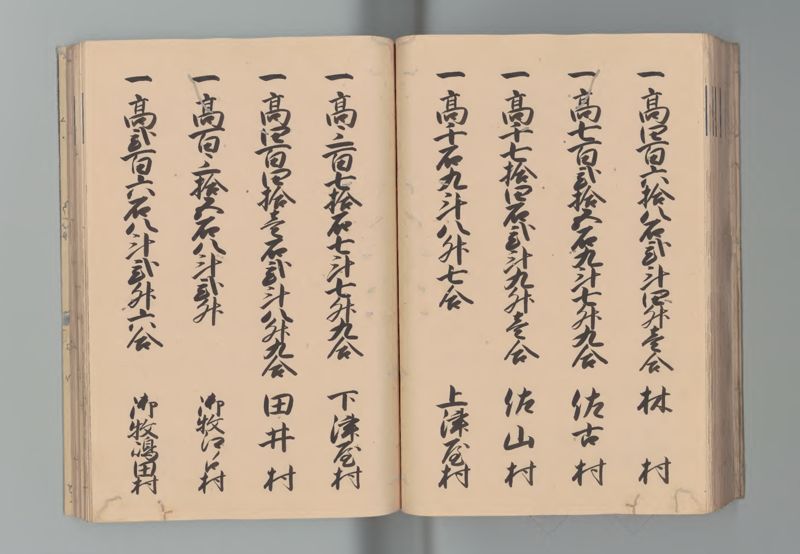 一 高四百六拾八石弐斗四升壱合 林村
一 高七百弐拾五石九斗七升九合 佐古村
一 高千七拾四石弐斗九升壱合 佐山村
一 高十石九斗八升七合 上津屋村
一 高三百七拾石七斗七升九合 下津屋村
一 高四百四拾壱石弐斗八升九合 田井村
一 高百三拾五石八斗弐升 御牧江ノ口村
一 高弐百六石八斗弐升六合 御牧嶋田村